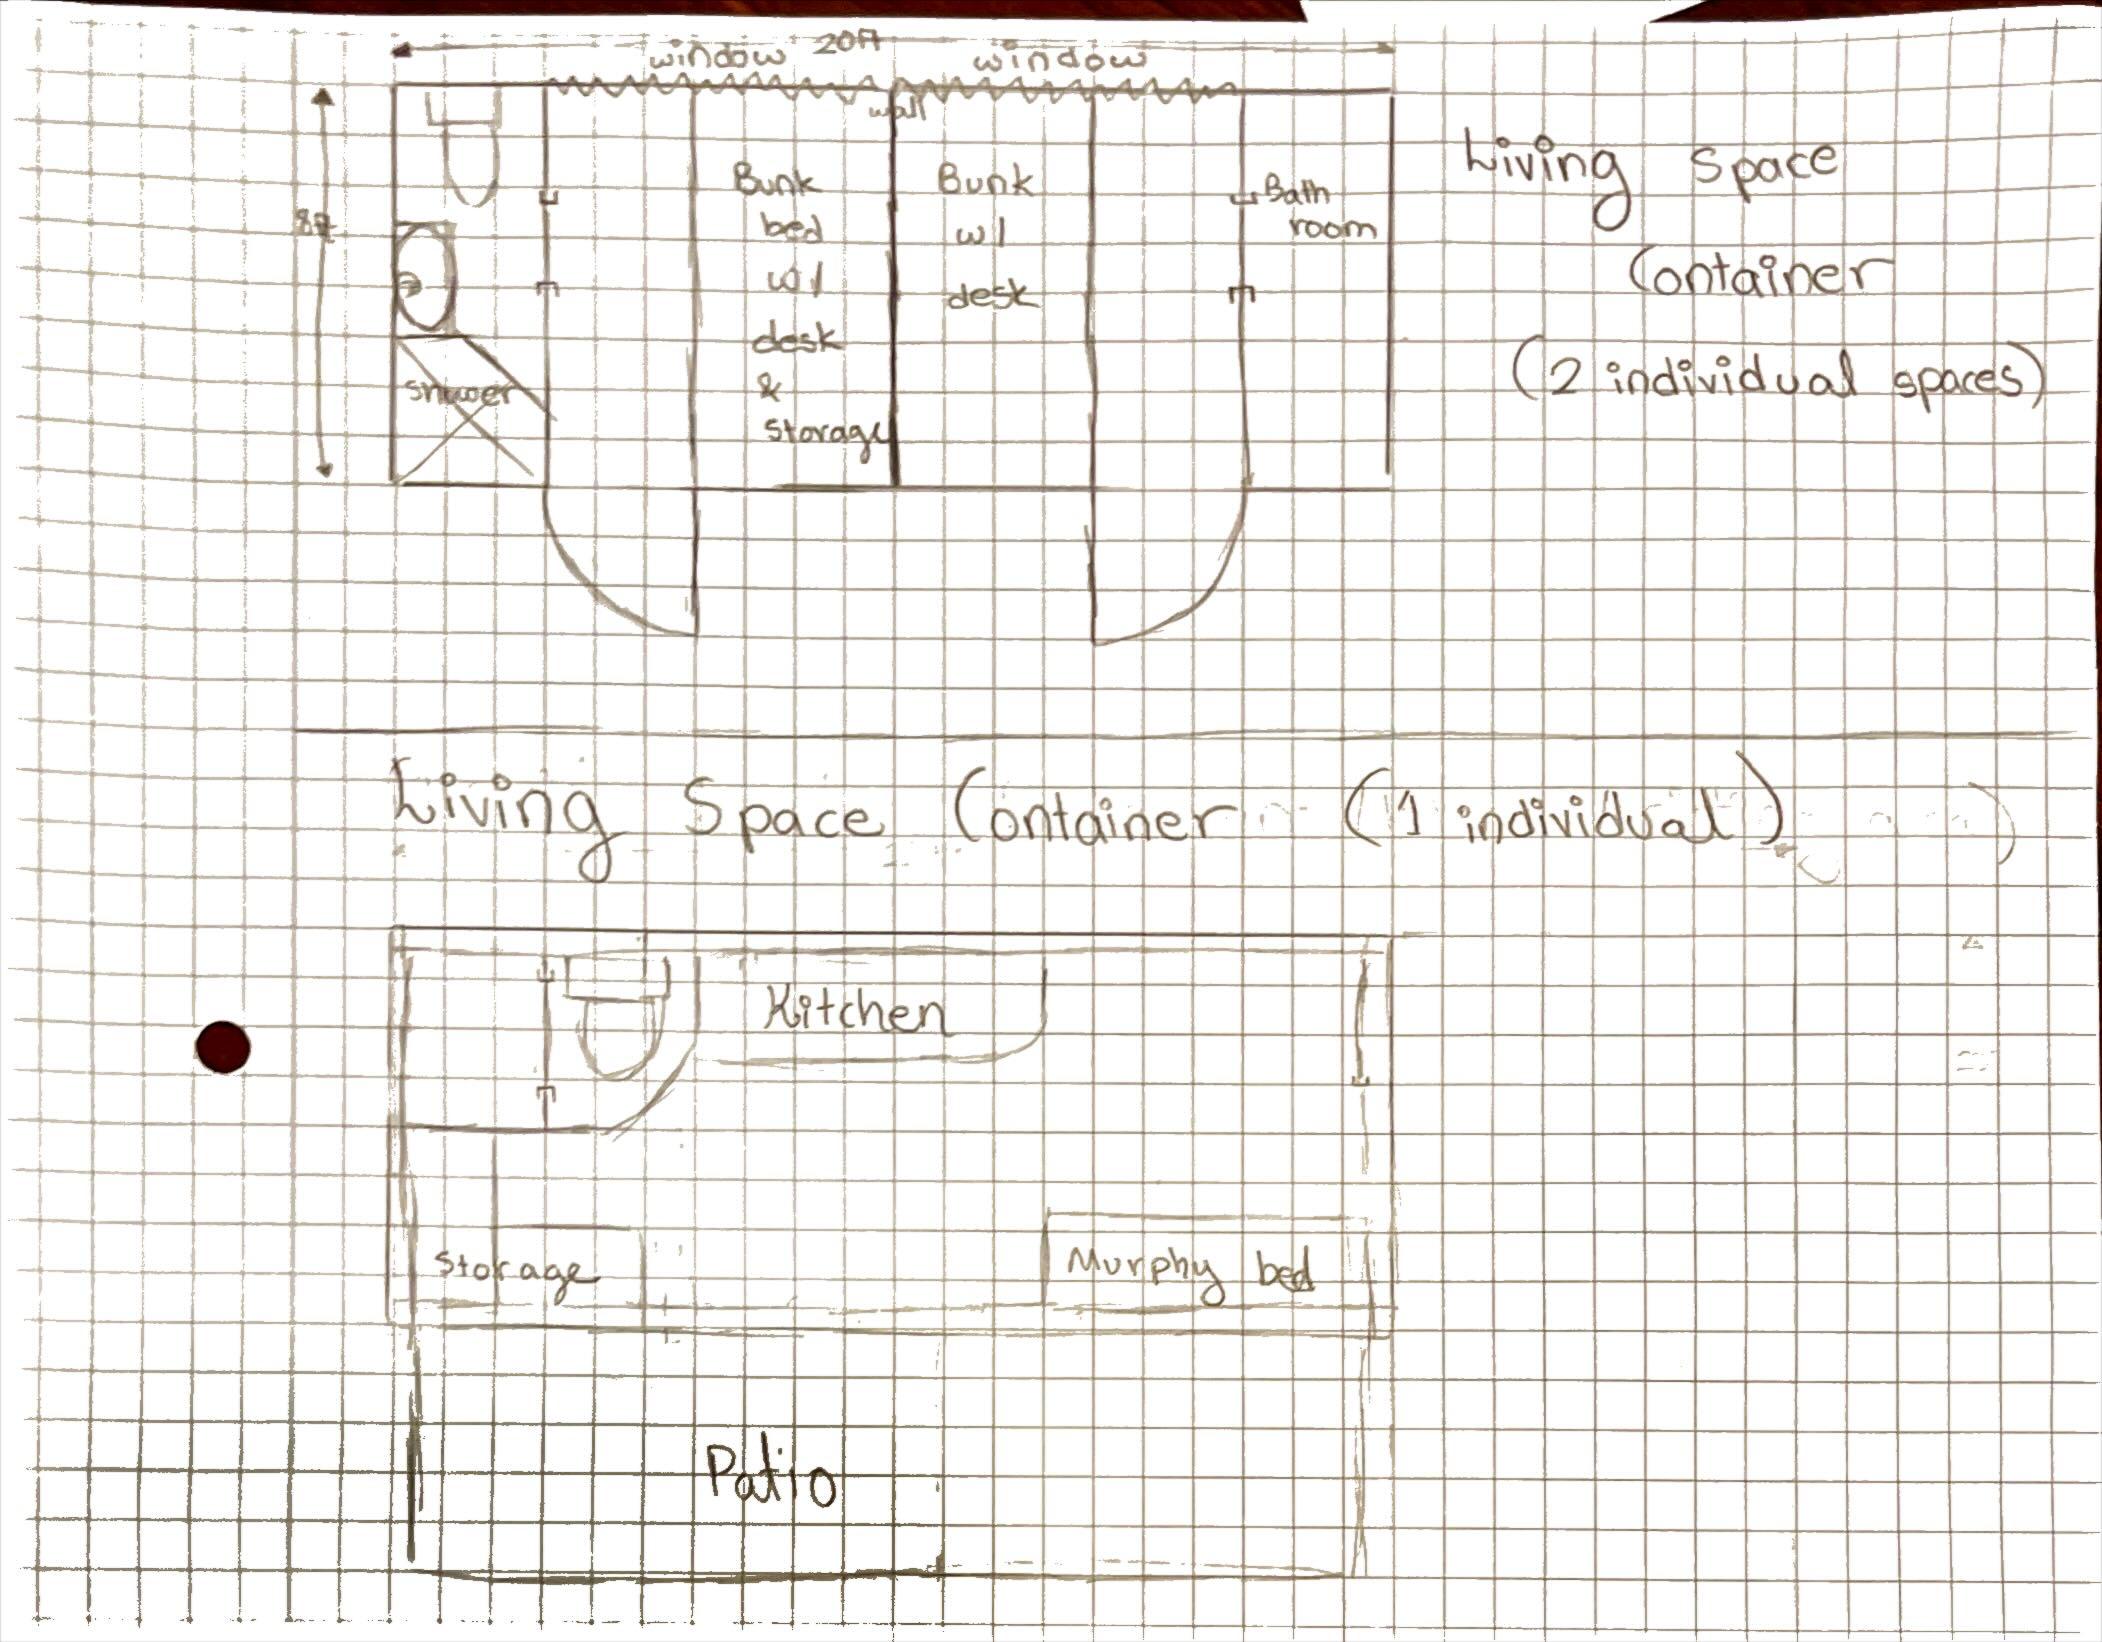 20ft
window window
wall
8ft
Bunk
bed
w/
desk
&
storage
Bunk
w/
desk
Bath
room
shower
Living Space
Container
(2 individual spaces)
Living Space Container (1 individual)
Kitchen
Storage
Murphy bed
Patio